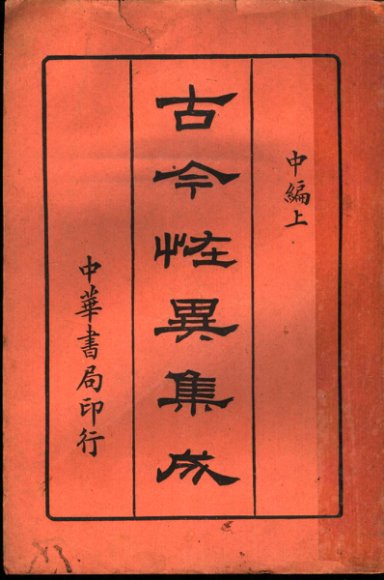 中編上
古今怪異集成
中華書局印行